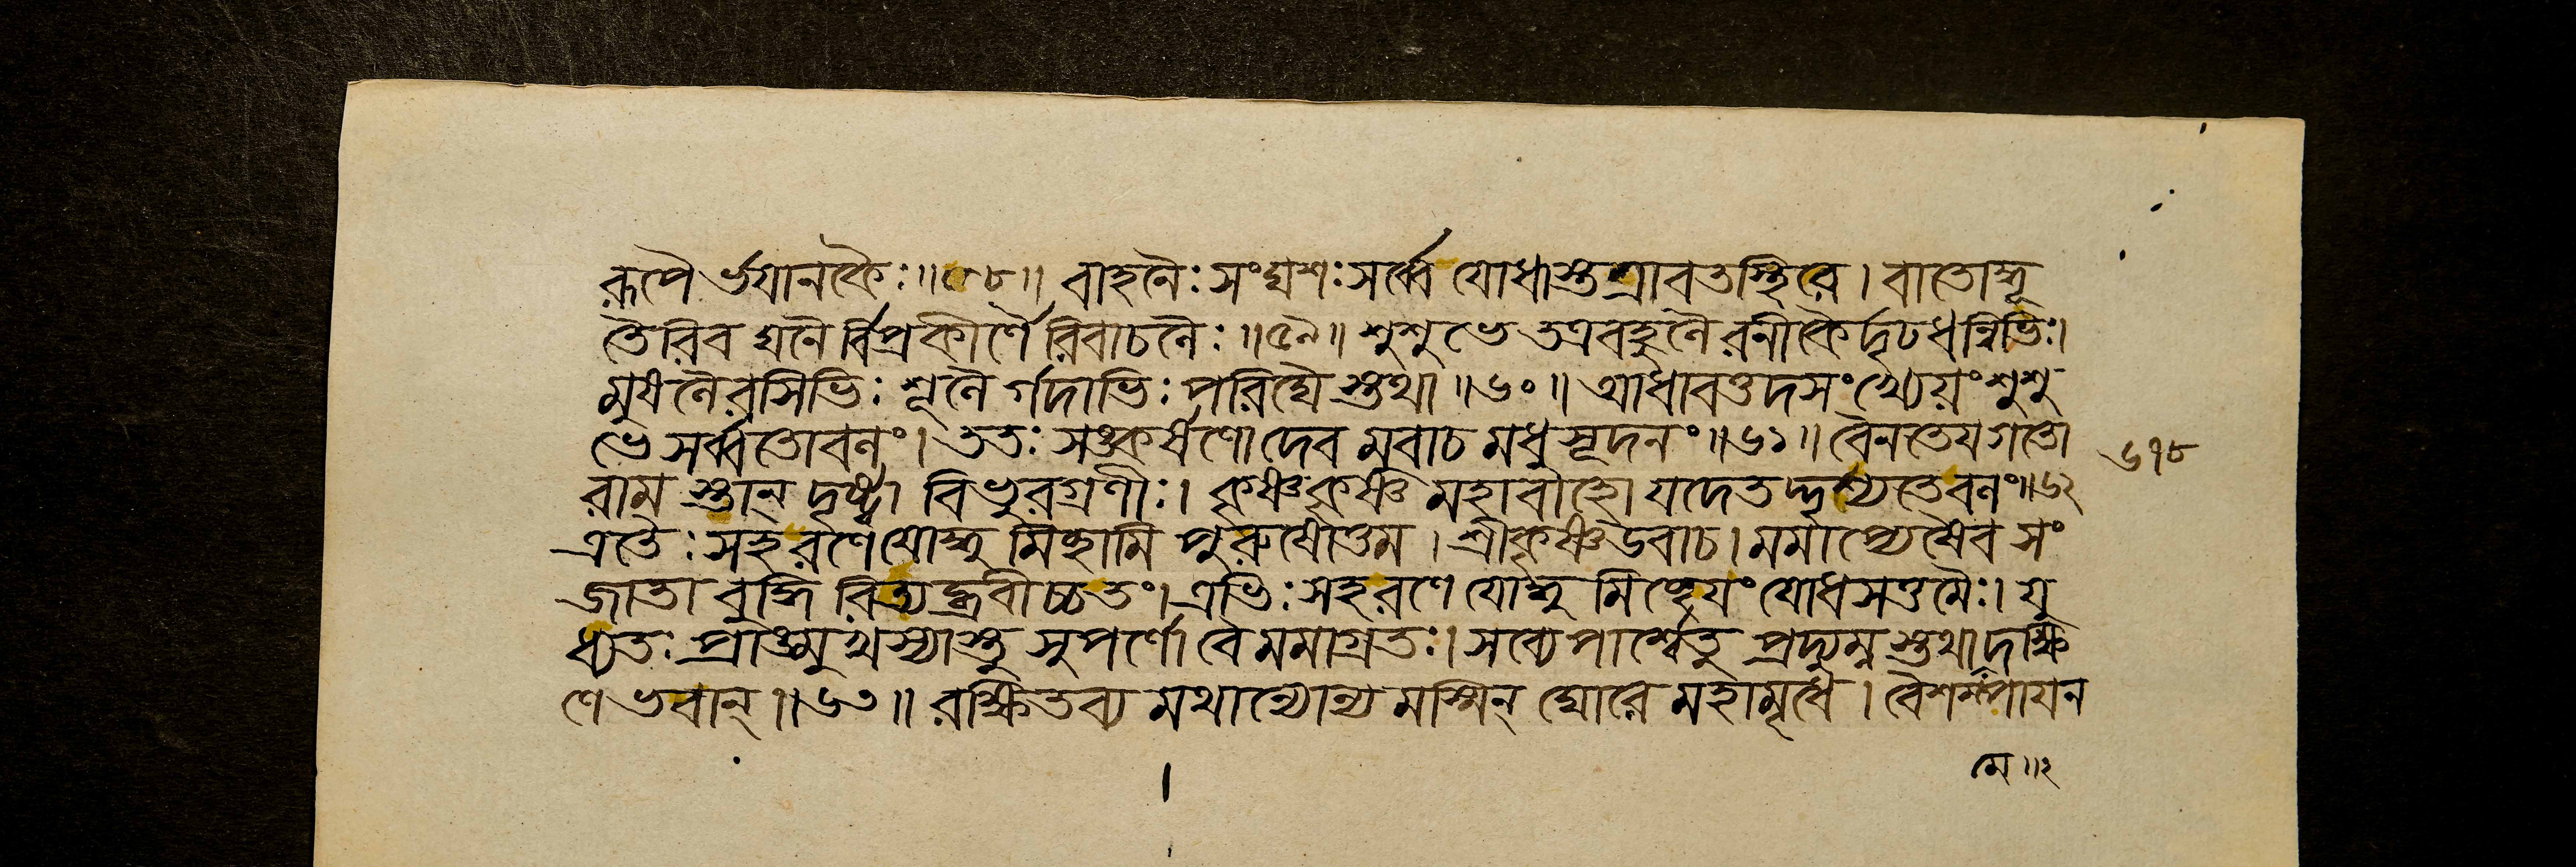 রূপৈ র্ভয়ানকৈঃ॥৫৮॥ বাহনৈঃ সংঘশঃ সর্ব্বে যোধাস্তত্রাবতস্থিরে। বাতোদ্ধূ
তৈরিব ঘনৈ র্বিপ্রকীর্ণৈ রিবাচলৈঃ॥৫৯॥ শুশুভে তত্রবহুলৈ রনীকৈর্দৃঢধন্বিভিঃ।
মুষলৈরসিভিঃ শূলৈ র্গদাভিঃ পরিঘৈ স্তথা॥৬০॥ আধাবত্তদসংখ্যেয়ং শুশু
ভে সর্ব্বতোবলং। ততঃ সঙ্কর্ষণো দেব মুবাচ মধুসূদনং॥৬১॥ বৈনতেযগতো
রাম স্তান্ দৃষ্ট্বা বিভুরগ্রণীঃ। কৃষ্ণকৃষ্ণ মহাবাহো যদেতদ্দৃশ্যতেবলং॥৬২
এতৈঃ সহরণেযোদ্ধু মিচ্ছামি পুরুষোত্তম। শ্রীকৃষ্ণউবাচ। মমাপ্যেষৈব সং
জাতা বুদ্ধি রিত্যব্রবীচ্চতং। এভিঃ সহরণে যোদ্ধু মিচ্ছেযং যোধসত্তমৈঃ। যু
ধ্যতঃ প্রাঙ্মুখস্যাস্তু সুপর্ণো বৈ মমাগ্রতঃ। সব্যেপার্শ্বেতু প্রদ্যুম্ন স্তথা দক্ষি
ণে ভবান্॥৬৩॥ রক্ষিতব্য মথান্যোন্য মস্মিন্ ঘোরে মহামৃধে। বৈশম্পাযন
৬৭৮
মে॥২